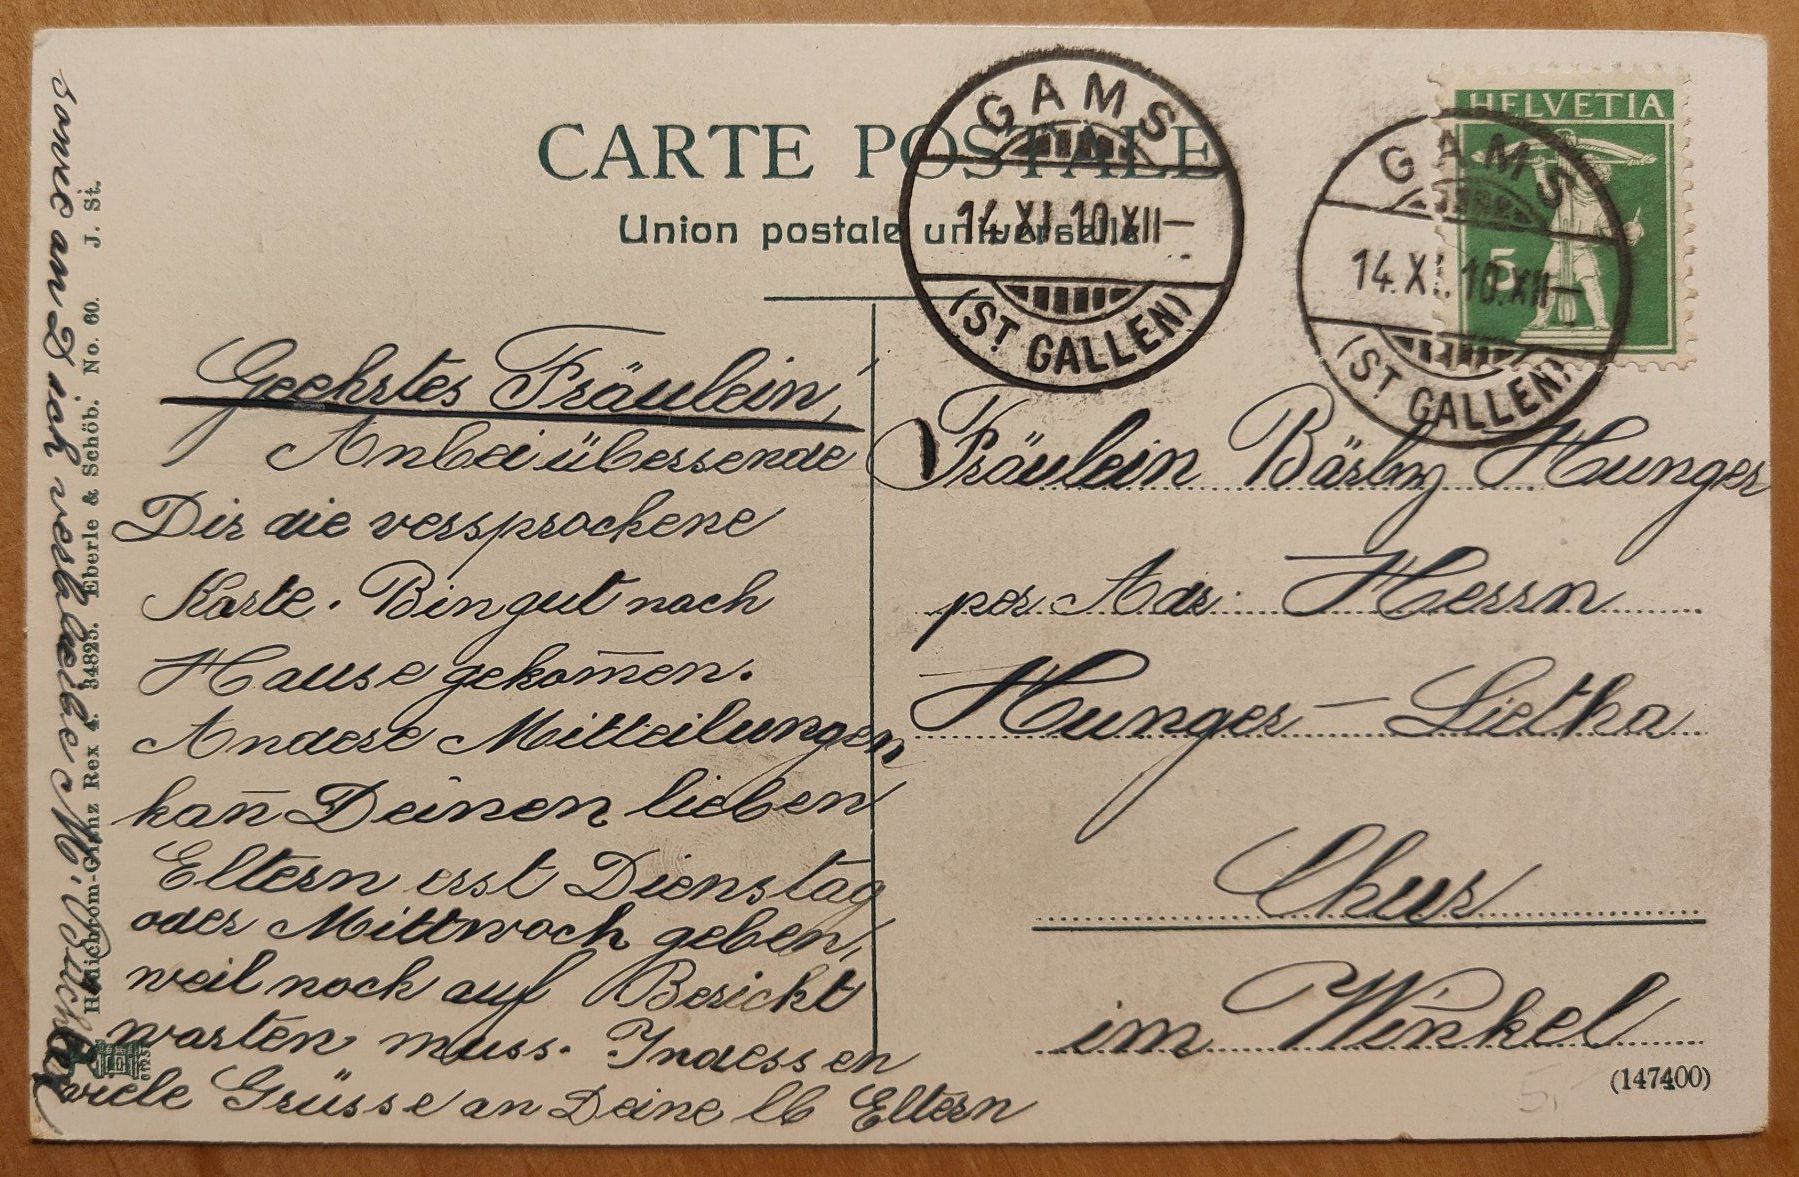 CARTE POSTALE
Union postale universelle
GAMS
14.XI.10.XII–
(ST. GALLEN)
GAMS
14.XI.10.XII–
(ST. GALLEN)
HELVETIA
5
Geehrtes Fräulein,
Anbei übersende
Dir die versprochene
Karte. Bin gut nach
Hause gekom̄en.
Andere Mitteilungen
kan̄ Deinen lieben
Eltern erst Dienstag
oder Mittwoch geben,
weil noch auf Bericht
warten muss. Indessen
viele Grüsse an Deine lb Eltern
sowie an Dich verbleibe M.
Fräulein Bärby Hunger
per Adr. Herrn
Hunger – Lietha
Chur
im Winkel
(147400)
5.
Heliochrom-Glanz Rex 4. 34825. Eberle & Schöb. No. 60. J. St.